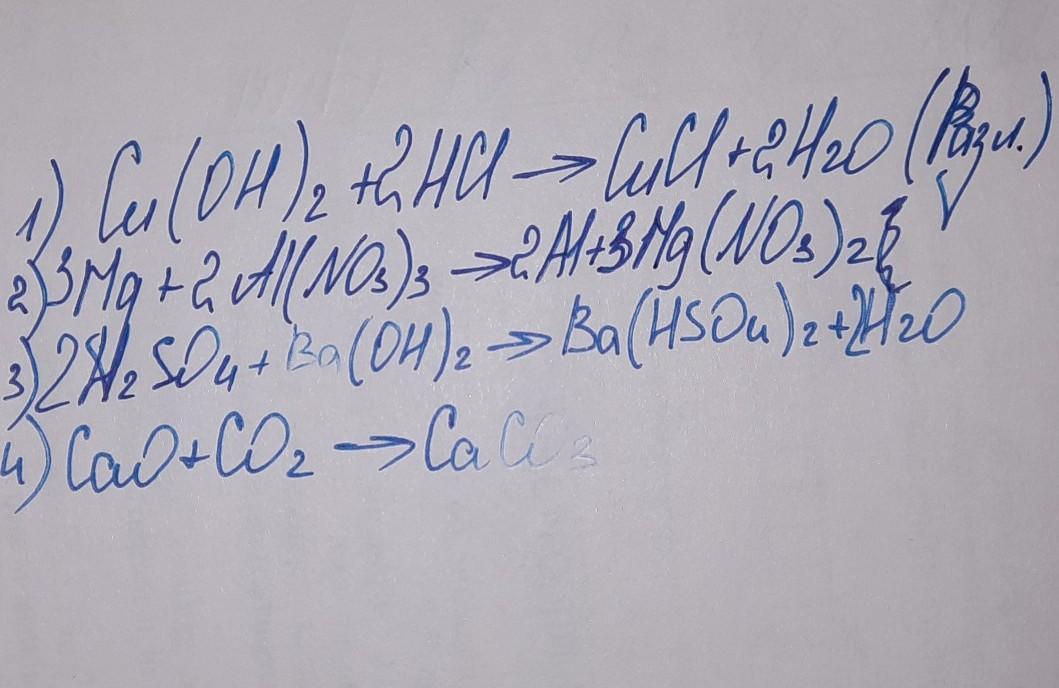 1) Cu(OH)2 +2HCl → CuCl+2H2O (Разл.)
2) 3Mg + 2Al(NO3)3 → 2Al+3Mg(NO3)2
3) 2H2SO4 + Ba(OH)2 → Ba(HSO4)2+2H2O
4) CaO+CO2 → CaCO3